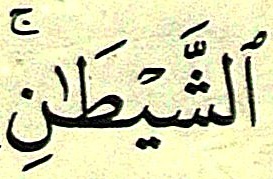 ٱلشَّيۡطَٰنِۚ